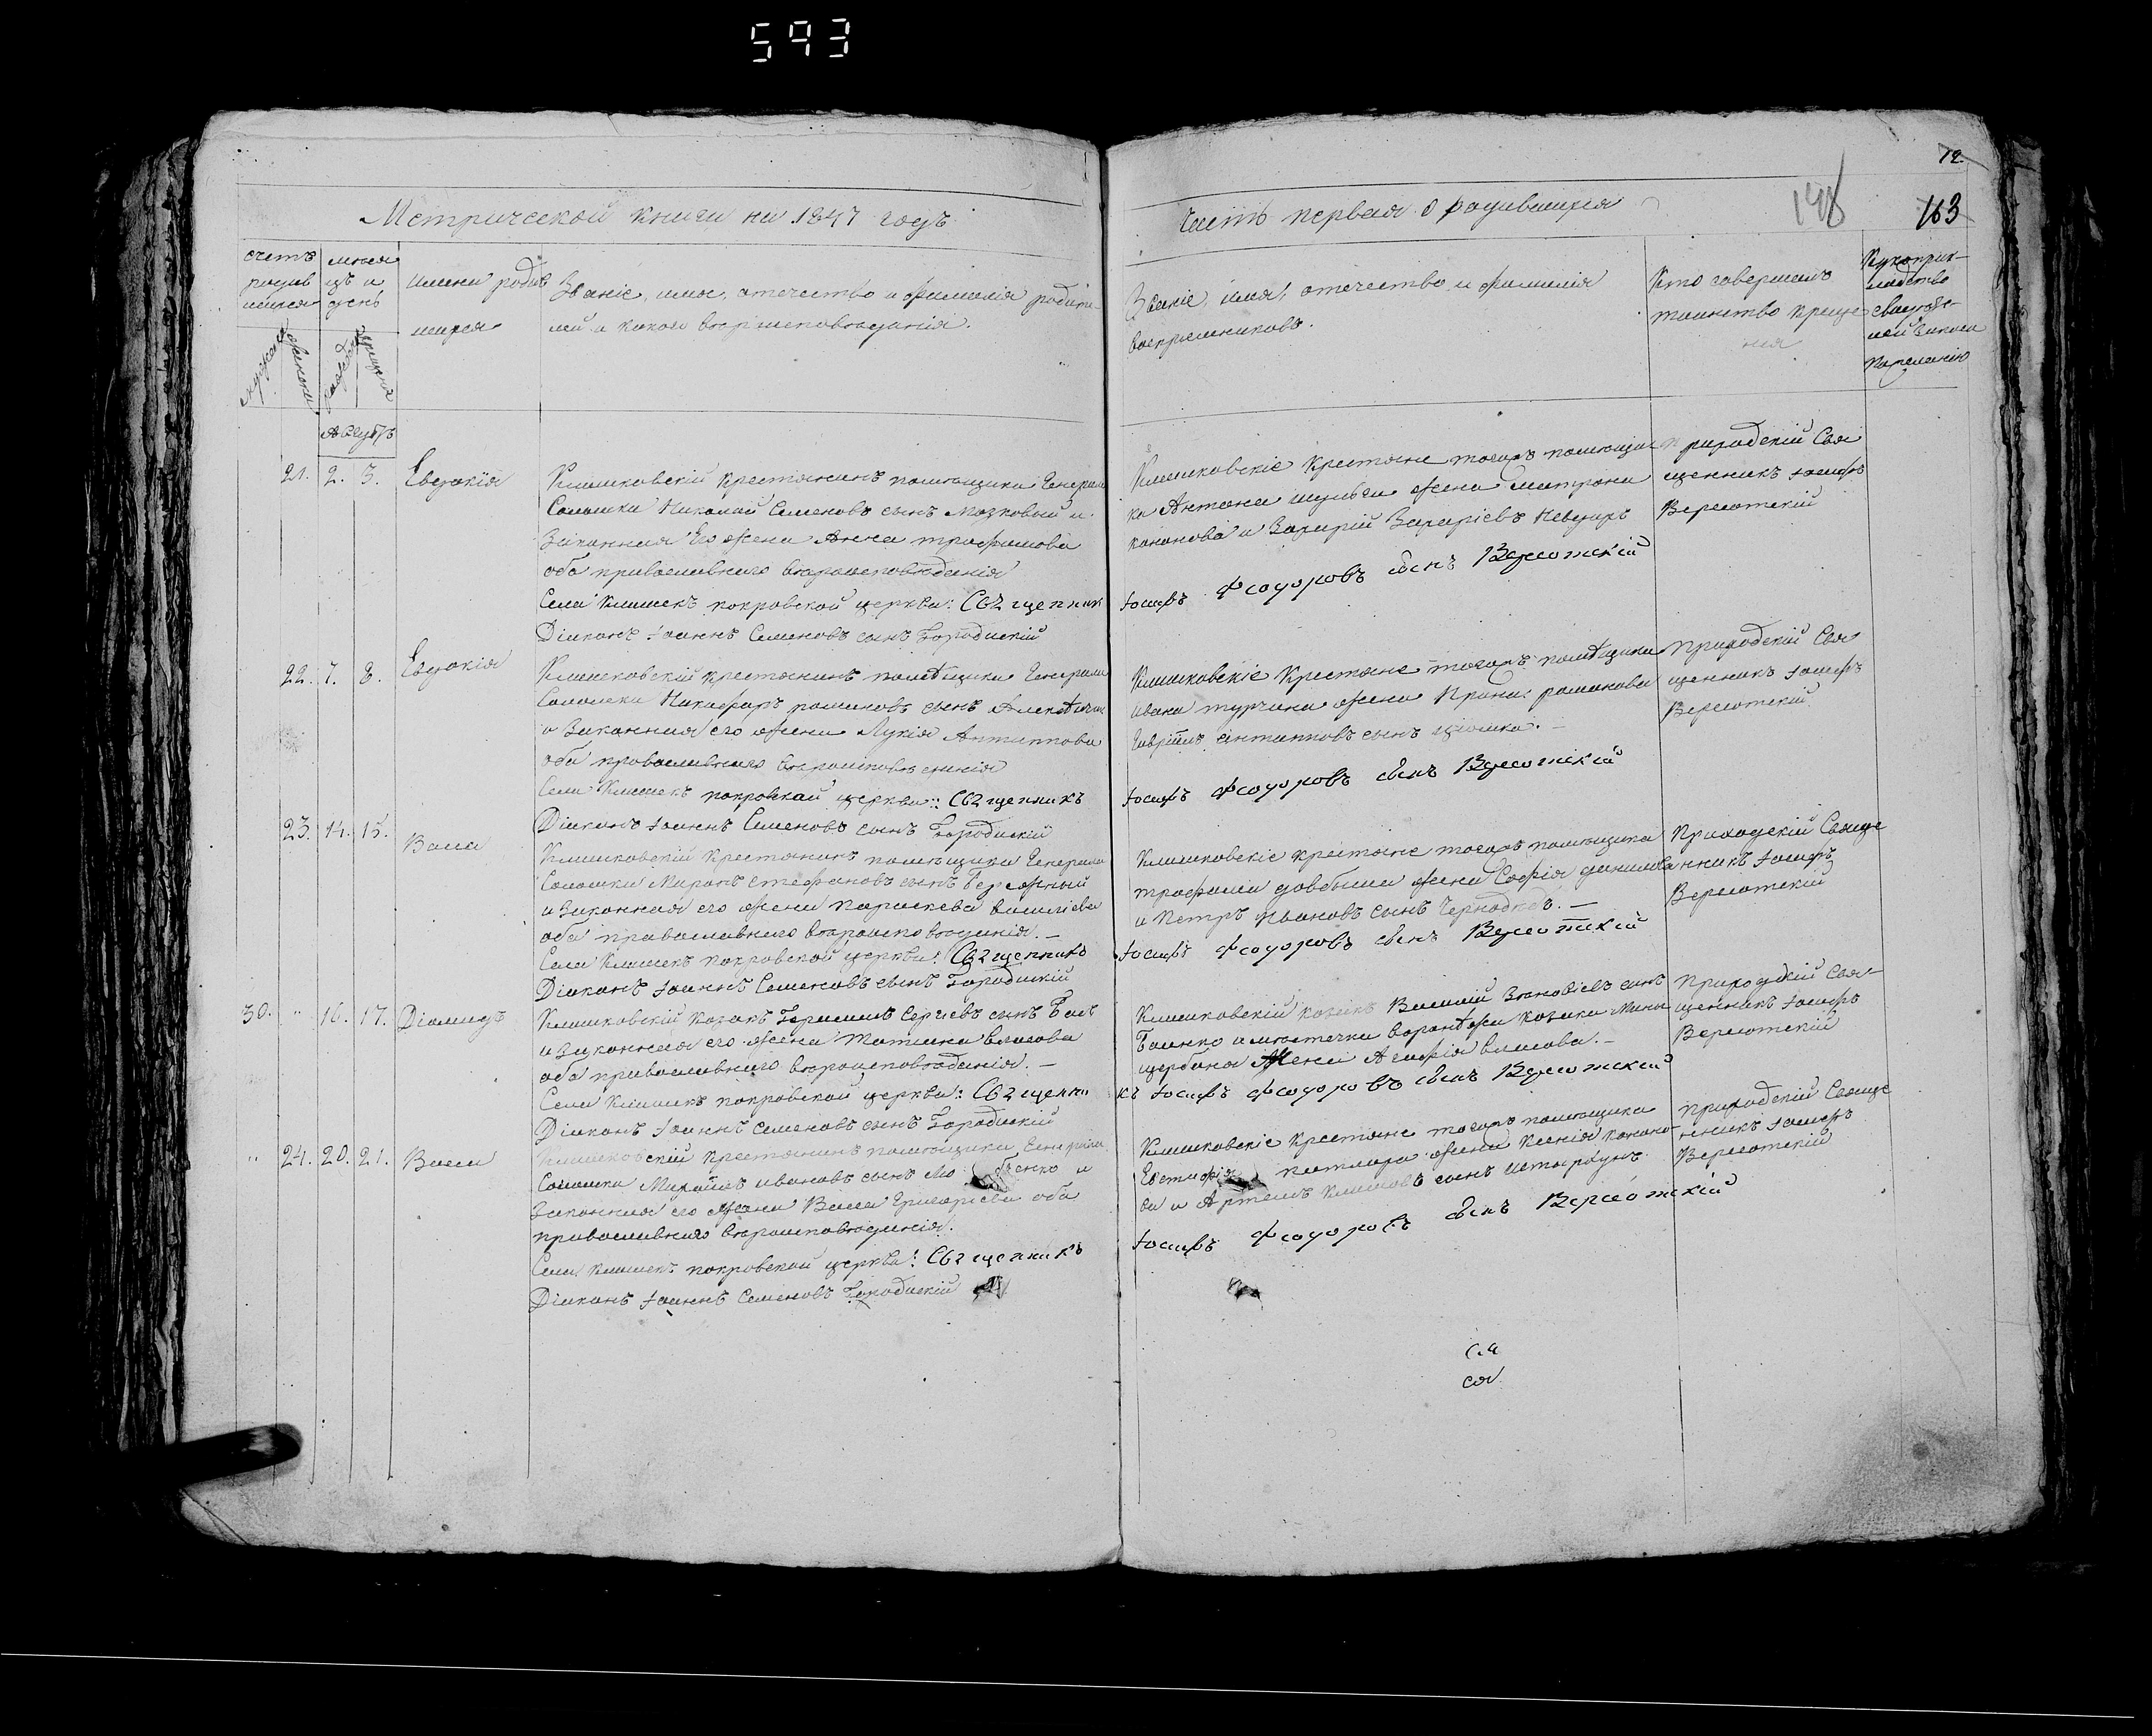 593
12.
Метрической книги на 1847 годъ
Часть первая о родившихся
148
163
счетъ родив шихся
месяцъ и день
имена родив шихся
Званіе, имя, отечество и фамилія родителей и какого вероисповеданія.
Званіе, имя, отечество и фамилія воспріемниковъ.
Кто совершалъ таинство крещения
Рукоприкладство свидетелей записи по желанію
мужеска женска
рожденія крещенія
Августъ
21. 2. 3. Евдокія
Клишковскій крестьянинъ помещика Генерала
Соломки Николай Семеновъ сынъ Мозковый и
Законная Его жена Анна трофимова
оба православнаго вероисповеданія
Села Клишекъ покровской церкви: Священник
Діаконъ Іоаннъ Семеновъ сынъ Городискій
Клишковскіе крестьяне тогожъ помещи
ка Антона жена матрона
кононова и Захарій Захаріевъ
Іосифъ Феодоровъ сынъ Верлотскій
Приходскій Свя
щенникъ Іосифъ
Верлотскій
22. 7. 8. Евдокія
Клишковскій крестьянинъ помѣщика Генерала
Соломки Никифоръ романовъ сынъ
и Законная его жена Лукія Антиппова
оба православнаго вероисповеданія
Села Клишекъ покровской церкви: Священникъ
Діаконъ Іоаннъ Семеновъ сынъ Городискій
Клишковскіе крестьяне тогожъ помѣщика
ивана турчина жена Ирина романова
Гавріилъ антипповъ сынъ
Іосифъ Феодоровъ сынъ Верлотскій
Приходскій Свя
щенникъ Іосифъ
Верлотскій
23. 14. 15. Васса
Клишковскій крестьянинъ помещика Генерала
Соломки Миронъ стефановъ сынъ Бережный
и Законная его жена параскева василіева
оба православнаго вероисповеданія. —
Села Клишекъ покровской церкви: Священникъ
Діаконъ Іоаннъ Семеновъ сынъ Городискій
Клишковскіе крестьяне тогожъ помещика
трофима довбыша жена Софія данилова
и Петръ Ивановъ сынъ —
Іосифъ Феодоровъ сынъ Верлотскій
Приходскій Свяще
нникъ Іосифъ
Верлотскій
30. " 16. 17. Діомидъ
Клишковскій Козакъ Герасимъ Сергіевъ сынъ
и Законная его жена Татіана власова
оба православнаго вероисповеданія. —
Села Клишекъ покровской церкви: Священни
Діаконъ Іоаннъ Семеновъ сынъ Городискій
Клишковскій козакъ Василій Зиновіевъ сынъ
и местечка Воронѣжа козака
щербака Жена Агафія власова. —
къ Іосифъ Феодоровъ сынъ Верлотскій
Приходскій Свя
щенникъ Іосифъ
Верлотскій
" 24. 20. 21. Васса
Клишковскій крестьянинъ помещика Генерала
Соломки Михаилъ ивановъ сынъ и
Законная его жена Васса Григоріева оба
православнаго вероисповеданія.
Села Клишекъ покровской церкви: Священникъ
Діаконъ Іоаннъ Семеновъ Городискій
Клишковскіе крестьяне тогожъ помещика
жена Ксенія конано
ва и Артемъ Климовъ сынъ
Іосифъ Феодоровъ сынъ Верлотскій
Приходскій Свяще
нникъ Іосифъ
Верлотскій